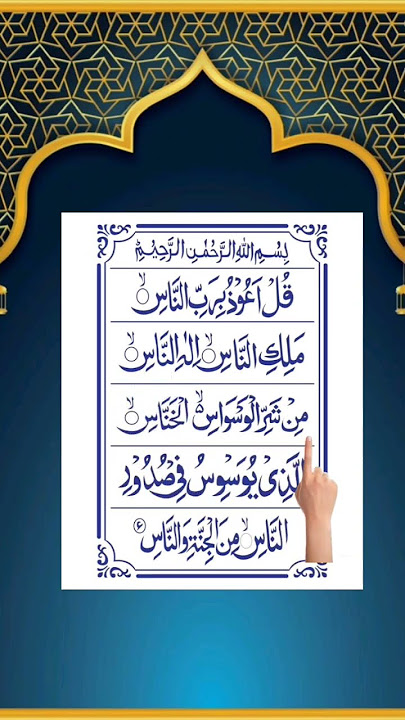 بِسْمِ اللهِ الرَّحْمٰنِ الرَّحِيْمِ
قُلْ اَعُوْذُ بِرَبِّ النَّاسِ ۙ
مَلِكِ النَّاسِ ۙ اِلٰهِ النَّاسِ ۙ
مِنْ شَرِّ الْوَسْوَاسِ ۙ الْخَنَّاسِ ۙ
الَّذِیْ یُوَسْوِسُ فِیْ صُدُوْرِ
النَّاسِ ۙ مِنَ الْجِنَّةِ وَالنَّاسِ ۶